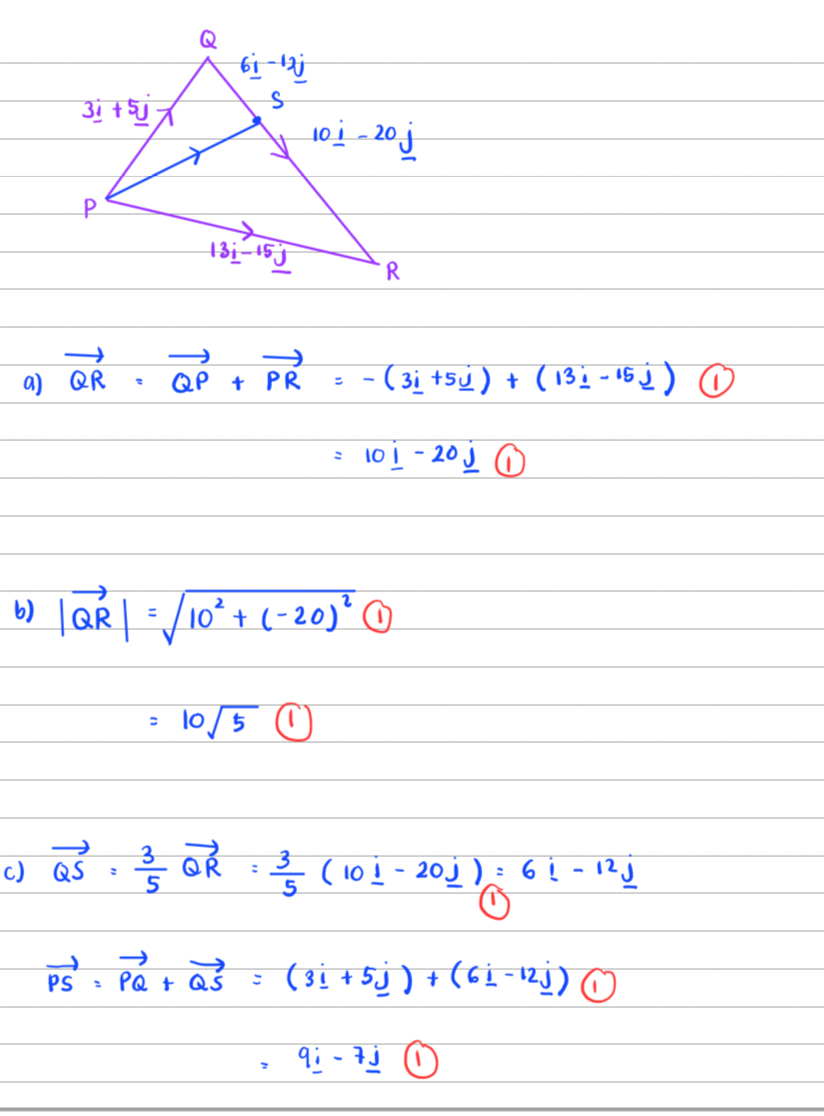 Q
6i - 12j
S
3i + 5j
10i - 20j
P
13i - 15j
R
a) QR = QP + PR = -(3i + 5j) + (13i - 15j) ①
= 10i - 20j ①
b) |QR| = √(10² + (-20)²) ①
= 10√5 ①
c) QS = 3/5 QR = 3/5 (10i - 20j) = 6i - 12j
①
PS = PQ + QS = (3i + 5j) + (6i - 12j) ①
= 9i - 7j ①